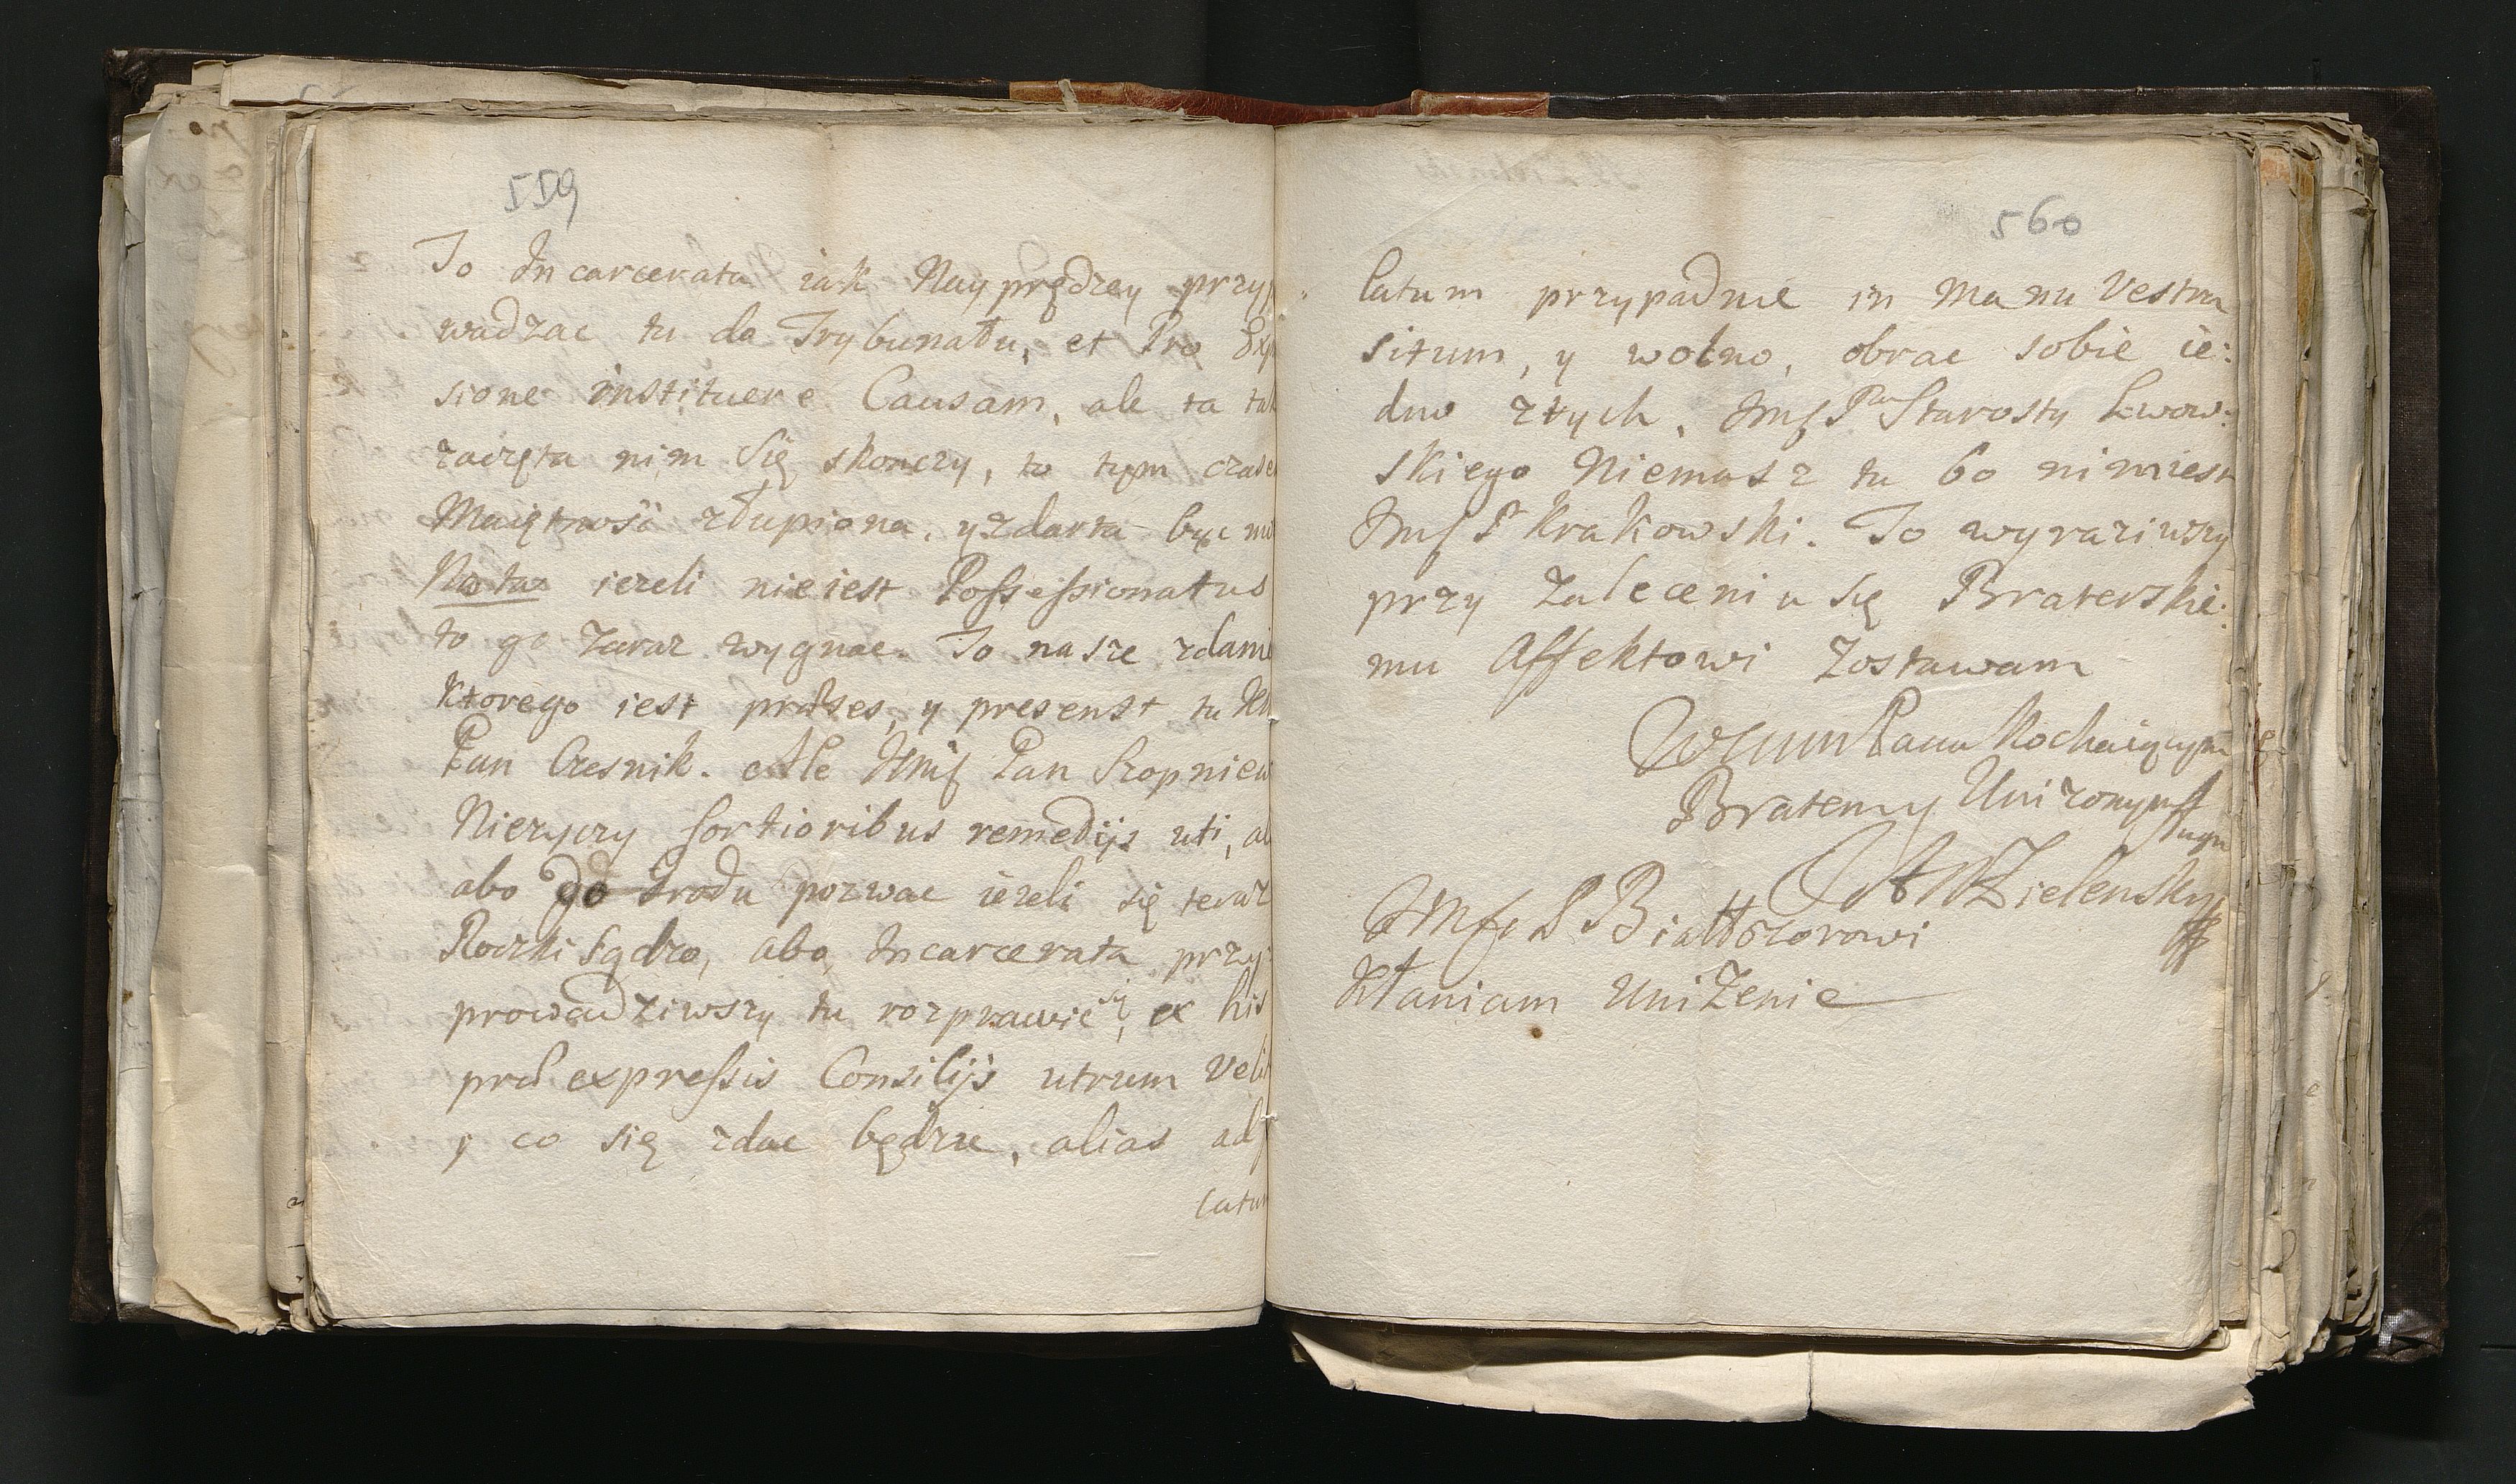 559
To Incarcerata iak Nayprędzey przyp
wadzac tu do Trybunału, et Pro Exp
sione instituere Causam, ale ta tak
zaczęta nim Się skonczy, to tym czase
Maiętność złupiona, y zdarta być
Notar iezeli nieiest Possessionatus
to go zaraz wygnac. To nasze zdani
ktorego iest præses, y presenst tu
Pan Czesnik. Ale Jmć Pan Szopniew
Nieryczy fortioribus remedijs uti, al
abo do Grodu pozwac iezeli się teraz
Roczki sądzo, abo, Incarcerata przy:
prowadziwszy tu rozprawić się, ex his
præexpressis Consilijs utrum Veli
y co się zdac będzie, alias ad
latu
560
latum przypadnie in Manu Vestra
situm, y wolno, obrac sobie ie:
dno złych, Jmć Pan Starosty Lwow:
skiego Niemasz tu bo nimiesz
Jmć P Krakowski. To wyraziwszy
przy Zaleceniu Się Braterskie:
mu Affektowi Zostawam
Wmm Panu Kochaiącym
Bratem y Unizonym
Sługą
Zielensky
Jmći P Białłozorowi
Kłaniam Uniżenie